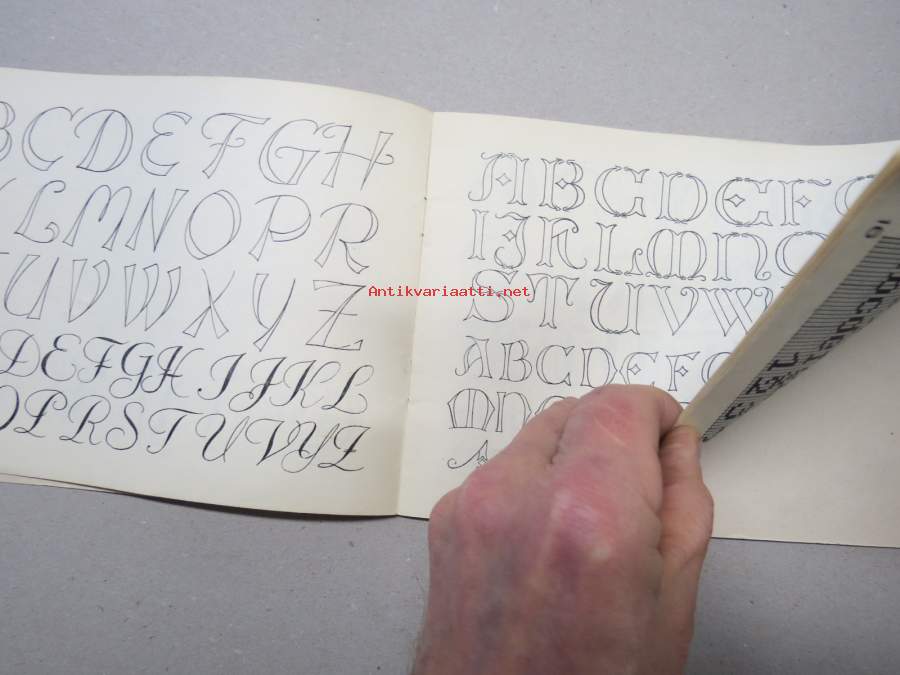 B C D E F G H
L M N O P R
U V W X Y Z
D E F G H I J K L
O P R S T U V Y Z
A B C D E F G
I J K L M N O
S T U V W
A B C D E F G
M N O
A
16
Antikvariaatti.net